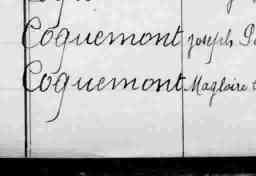 Coquemont Joseph
Coquemont Magloire